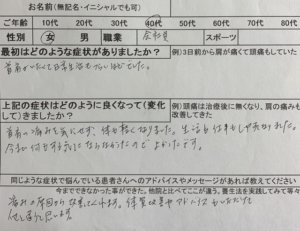 お名前(無記名・イニシャルでも可)
ご年齢 10代 20代 30代 40代 50代 60代
性別 女 男 職業 会社員 スポーツ
最初はどのような症状がありましたか? 例)3日前から肩が痛くて頭痛もしていた
首肩がいたくて日常生活も
上記の症状はどのように良くなって(変化
して)きましたか? 例)頭痛は治療後に無くなり、肩の痛みも
改善してきた
首肩の痛みも気にせず、体も軽くなりました。生活も仕事も
今は何をする気に よかったです。
同じような症状で悩んでいる患者さんへのアドバイスやメッセージがあれば教えてください
今までできなかった事ができた。他院と比べてここが違う。養生法を実践してみて等々
痛みの原因から 体質改善やアドバイスもいただけ
と思います。